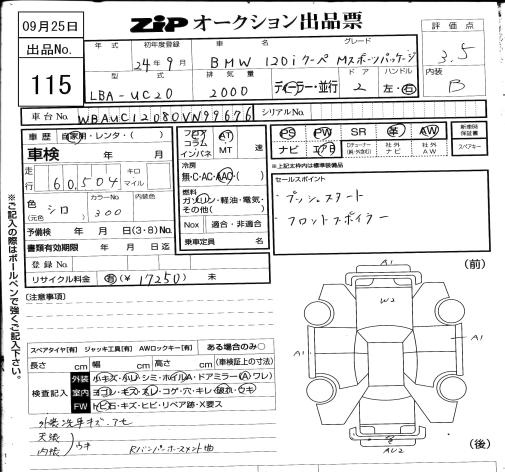 09月25日
ZiP オークション出品票
出品No.
115
年式 初年度登録 車名 グレード 評価点
24年9月 BMW 120i クーペ Mスポーツパッケージ 3.5
型式 排気量 ドア ハンドル 内装
LBA-UC20 2000 ディーラー・並行 2 左・右 B
車台No. WBAUC12080VN99676 シリアルNo.
車歴 自家用・レンタ・( )
フロア コラム インパネ AT MT 速
PS PW SR 革 AW
ナビ エアB 社外ナビ 社外AW
新車時保証書 スペアキー
車検 年 月
冷房
無・C・AC・AAC・( )
※上記太枠内は標準装備品
走行 60,504 キロ マイル
燃料
ガソリン・軽油・電気・その他( )
セールスポイント
プッシュスタート
フロントスポイラー
色(元色) シロ カラーNo. 300 内装色
予備検 年 月 日(3・8)No.
Nox 適合・非適合
書類有効期限 年 月 日迄
乗車定員 名
登録No.
リサイクル料金 有(¥ 17250) 未
(注意事項)
※ご記入の際はボールペンで強くご記入下さい。
(前)
A1
W2
A1
A1
AU2
(後)
スペアタイヤ[有] ジャッキ工具[有] AWロックキー[有] ある場合のみ○
長さ cm 幅 cm 高さ cm (車検証上の寸法)
検査記入 外装 小キズ・小凹・シミ・ホイルA・ドアミラー(A)ワレ)
室内 ヨゴレ・キズ・スレ・コゲ・穴・キレ・破れ・ウキ
FW トビ石・キズ・ヒビ・リペア跡・X要ス
外装洗車キズ・アセ
天張
内張 ウキ
Rバンパーホースメント曲